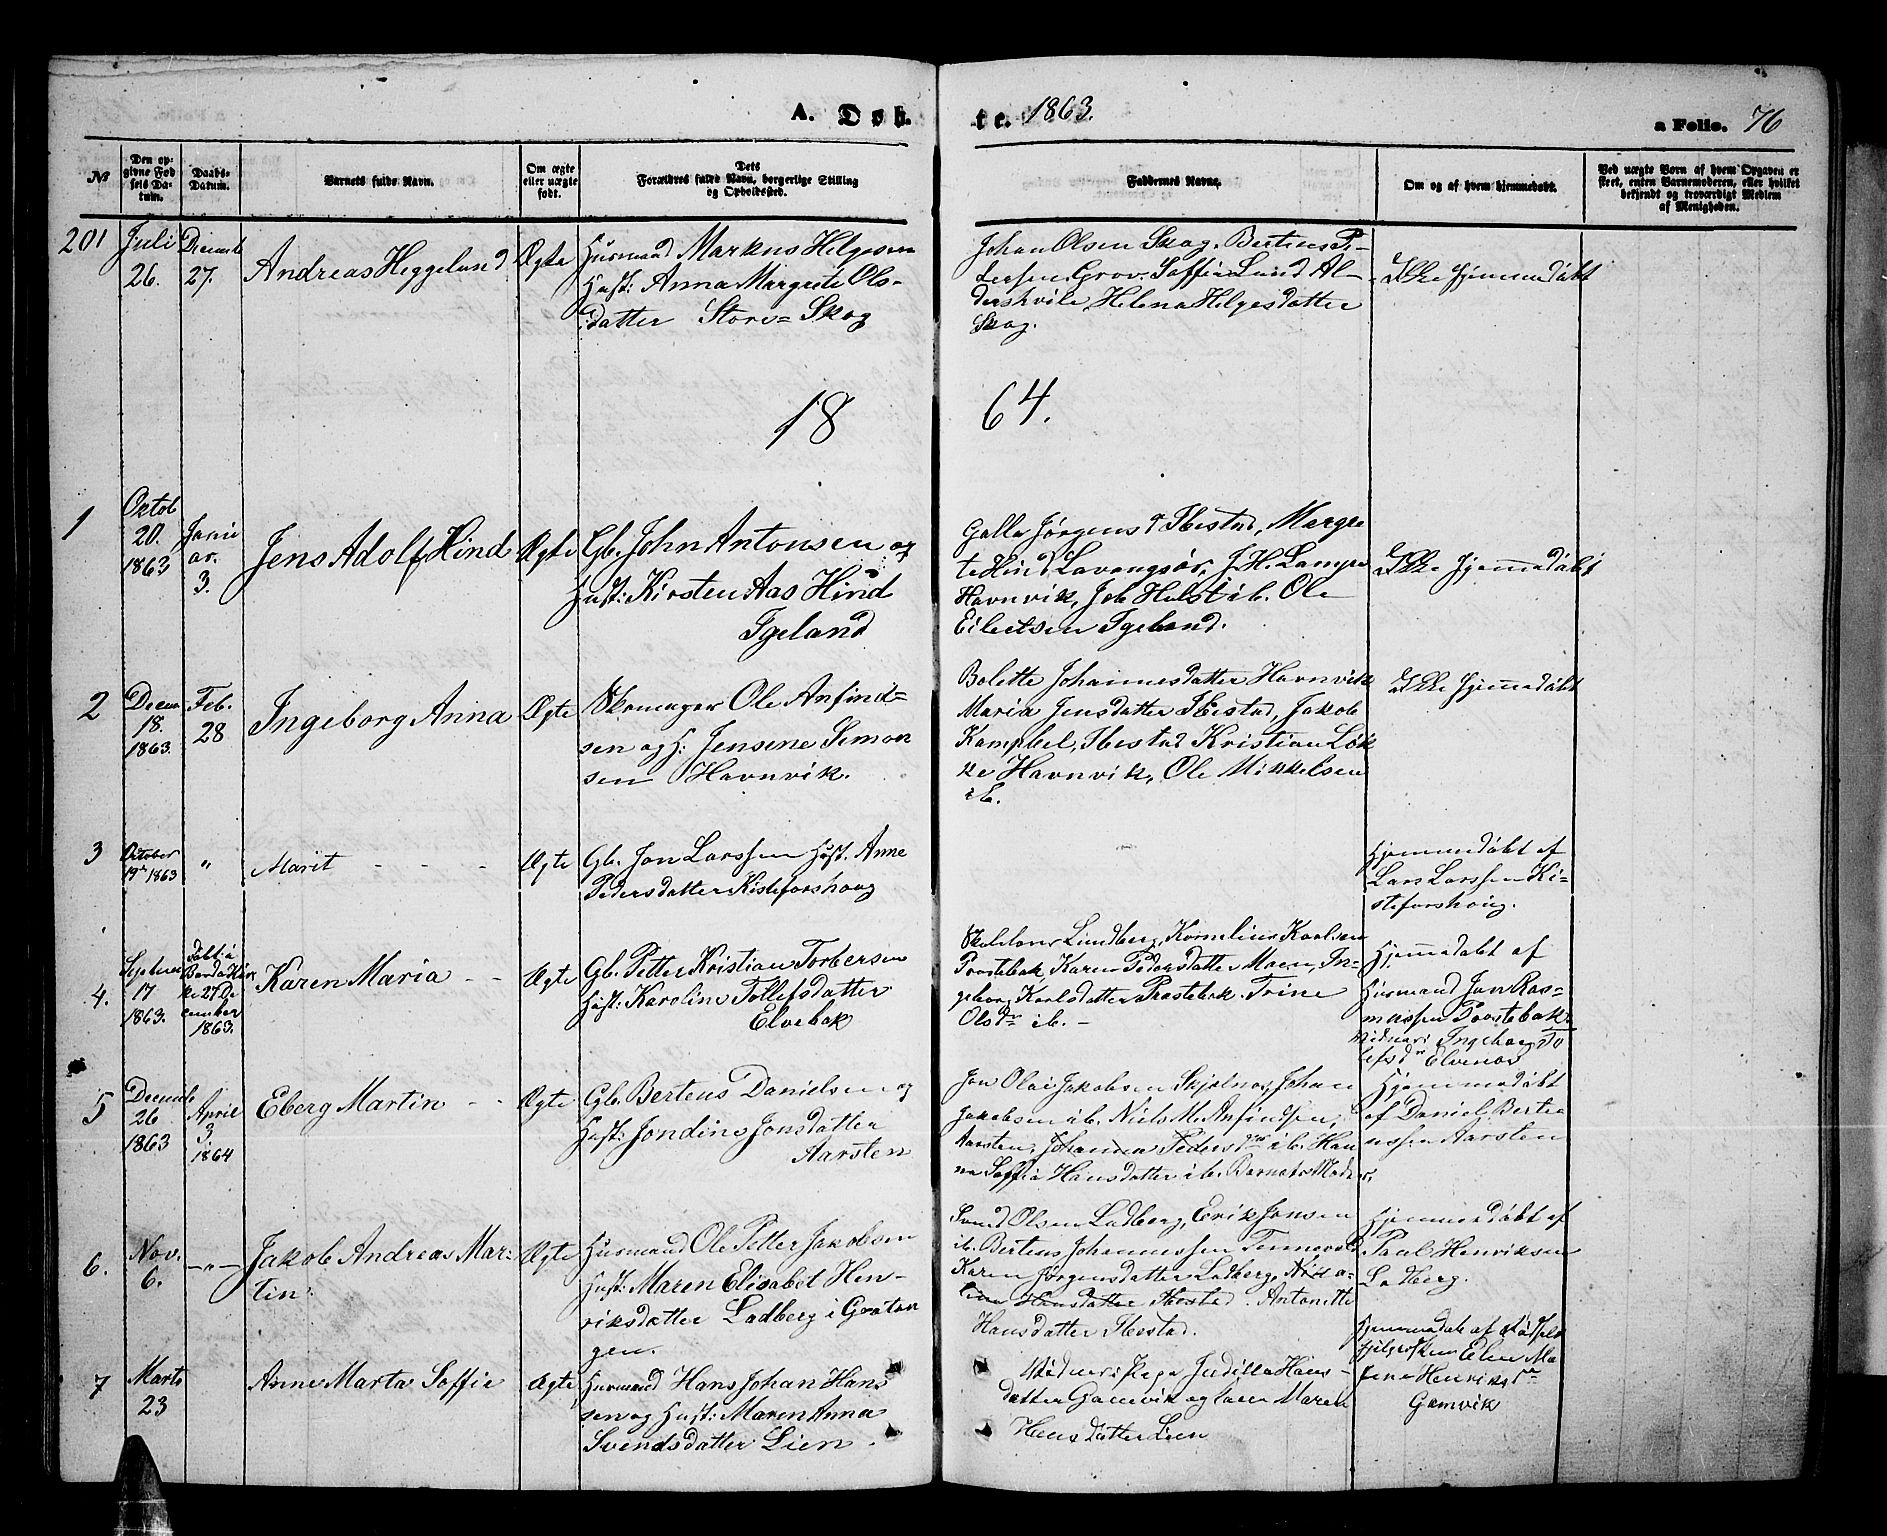 A. Døb.
te. 1863.
a Folio. 76
№
Den op-
givne Fød
sels Da-
tum.
Daabs-
Datum.
Barnets fulde Navn.
Om ægte
eller uægte
født.
Dets
Forældres fulde Navn, borgerlige Stilling
og Opholdssted.
Faddernes Navne.
Om og af hvem hjemmedøbt.
Ved uægte Børn af hvem Opgaven er
skeet, enten Barnemoderen, eller hvilket
bekjendt og troværdigt Medlem
af Menigheden.
201
Juli
26.
Decemb
27.
Andreas Heggelund
Ægte
Husmand Markus Helgesen
Hust: Anna Margrete Ols-
datter Stors=Skog
Johan Olsen Skog, Bertens Pe-
dersen Grov. Soffia Lund Al-
dershvile, Helena Helgesdatter
Skog.
Ikke hjemmedøbt
18
64.
1
Oktob
20.
1863
Janu
ar.
3.
Jens Adolf Hind
Ægte
Gb. John Antonsen og
Hust: Kirsten Aas Hind
Igeland
Jørgensd Ibestad, Margre
te Hind Lavangsør, J. H. Lampe
Havnvik, Job Holst ib. Ole
Eilertsen Igeland.
Ikke hjemmedøbt
2
Decem
18.
1863.
Feb.
28
Ingeborg Anna
Ægte
Skomager Ole Anfind=
sen og H: Jensine Simon
sen Havnvik.
Bolette Johannesdatter Havnvik
Maria Jensdatter Ibestad, Jakob
Kampbel, Ibestad Kristian Løk
ke Havnvik, Ole Mikkelsen
ib.
Ikke hjemmedøbt
3
October
19de 1863
"
Marit - - - -
Ægte
Gb. Jon Larssen Hust. Anne
Pedersdatter Kisteforshoug
Hjemmedøbt af
Lars Larssen Ki-
steforshoug.
4.
Septem
17
1863.
Bardokir
ke 27 De
cember
1863.
Karen Maria - -
Ægte
Gb. Petter Kristian Torbersen
Hust: Karoline Tollefsdatter
Elvebak
Skoleholder Lundberg, Kornelius Karlsen
Prostebak, Karen Pedersdatter Moen, In-
geborg Karlsdatter Prestebak. Trine
Olsdr ib. -
Hjemmedøbt af
Husmand Jon Ras-
mussen Prostebak
Ingeborg To
lefsdr Elvenes
5
Decemb
26
1863
April
3
1864
Eberg Martin - -
Ægte
Gb. Bertens Danielsen og
Hust: Jondine Jonsdatter
Aarsten
Jon Olai Jakobsen Skjelnes, Johan
Jakobsen ib. Niels M. Anfindsen,
Aarsten, Johanna Pedersdtr ib. Han
na Soffia Hansdatter ib. Barnets Moder.
Hjemmedøbt
af Daniel Berte
nssen Aarsten
6.
Nov.
6.
- " -
Jakob Andreas Mar-
tin.
Ægte
Husmand Ole Petter Jakobsen
Hust: Maren Elisabet Hen-
riksdatter Ladberg i Gratan
gen.
Svend Olsen Ladberg, Erik Jonsen
ib. Bertens Johannessen Tennevold
Karen Jørgensdatter Ladberg,
Hansdatter Ibestad. Antonette
Hansdatter Ibestad.
Hjemmedøbt af
Paul Henriksen
Ladberg.
7
Marts
23
Anne Marta Soffie
Ægte
Husmand Hans Johan Hans
sen og Hust: Maren Anna
Svendsdatter Lien.
Pige Judilla Hans-
datter Gamvik og Maren
Hansdatter Lien
Hjemmedøbt af
Elen Ma
Henriksdr
Gamvik